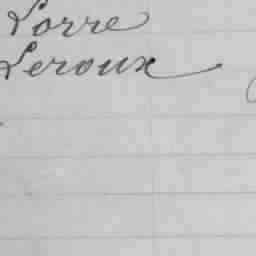 Lorre
Leroux